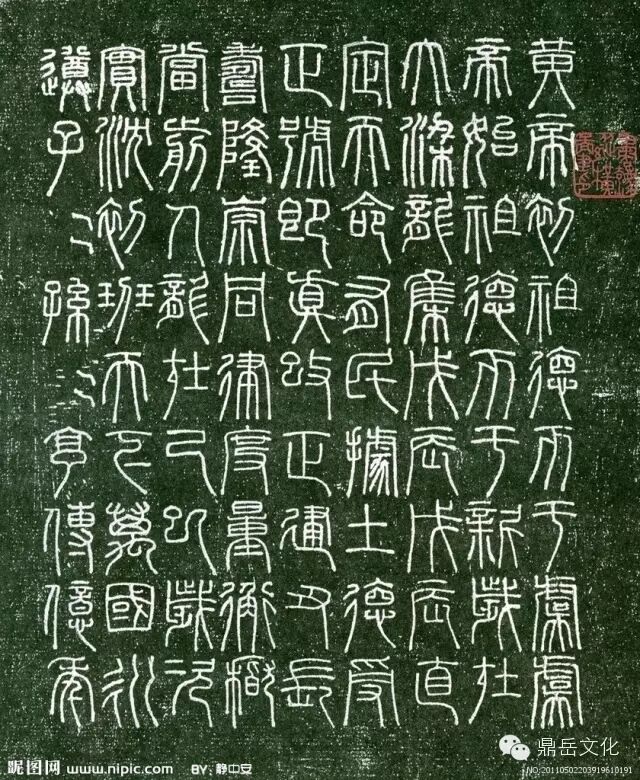 黃帝初祖德帀于虞虞
帝始祖德帀于新歲在
大梁龍集戊辰戊辰直
定天命有民據土德受
正號即真改正建丑長
壽隆崇同律度量衡稽
當前人龍在己巳歲次
實沈初班天下萬國永
遵子〻孫〻亨傳億年
鼎岳文化
昵图网 www.nipic.com BY: 静中安
NO:20110502203919610191